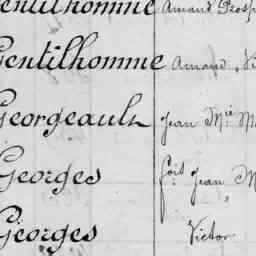 Gentilhomme Amand Prosp
Gentilhomme Amand, Vi
Georgeault Jean Mie M
Georges fois Jean M
Georges Victor